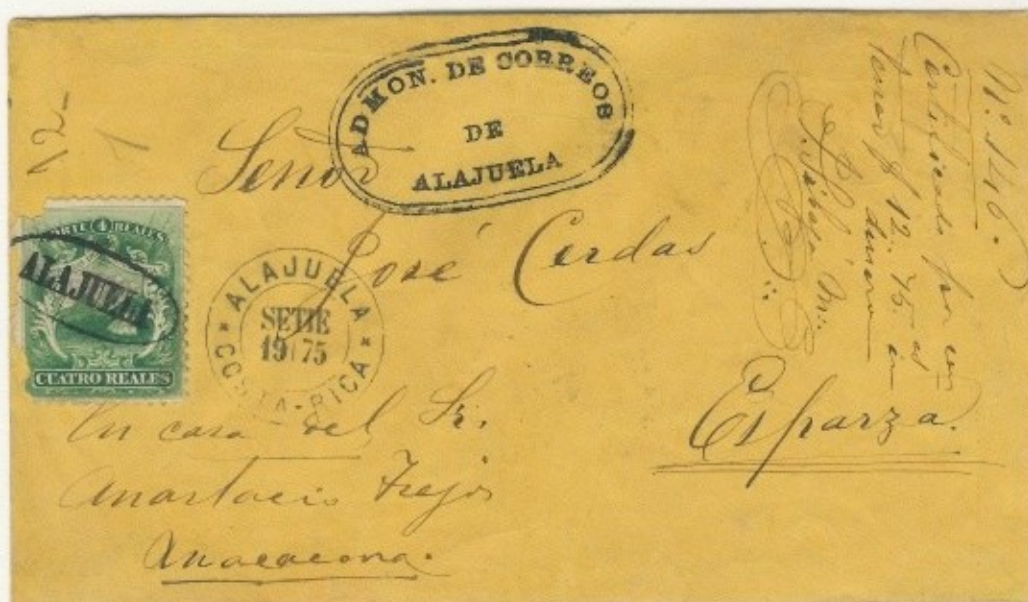 12-
1
ADMON. DE CORREOS
DE
ALAJUELA
Señor
José Cerdas
PORTE 4 REALES
ALAJUELA
CUATRO REALES
ALAJUELA
SETIE
19 75
* COSTA-RICA *
En casa del Sr.
Anastacio Trejos
Macacona.
Esparza.
Nº 1446.
Certificado por con
tener $ 12.75 cs en
dinero